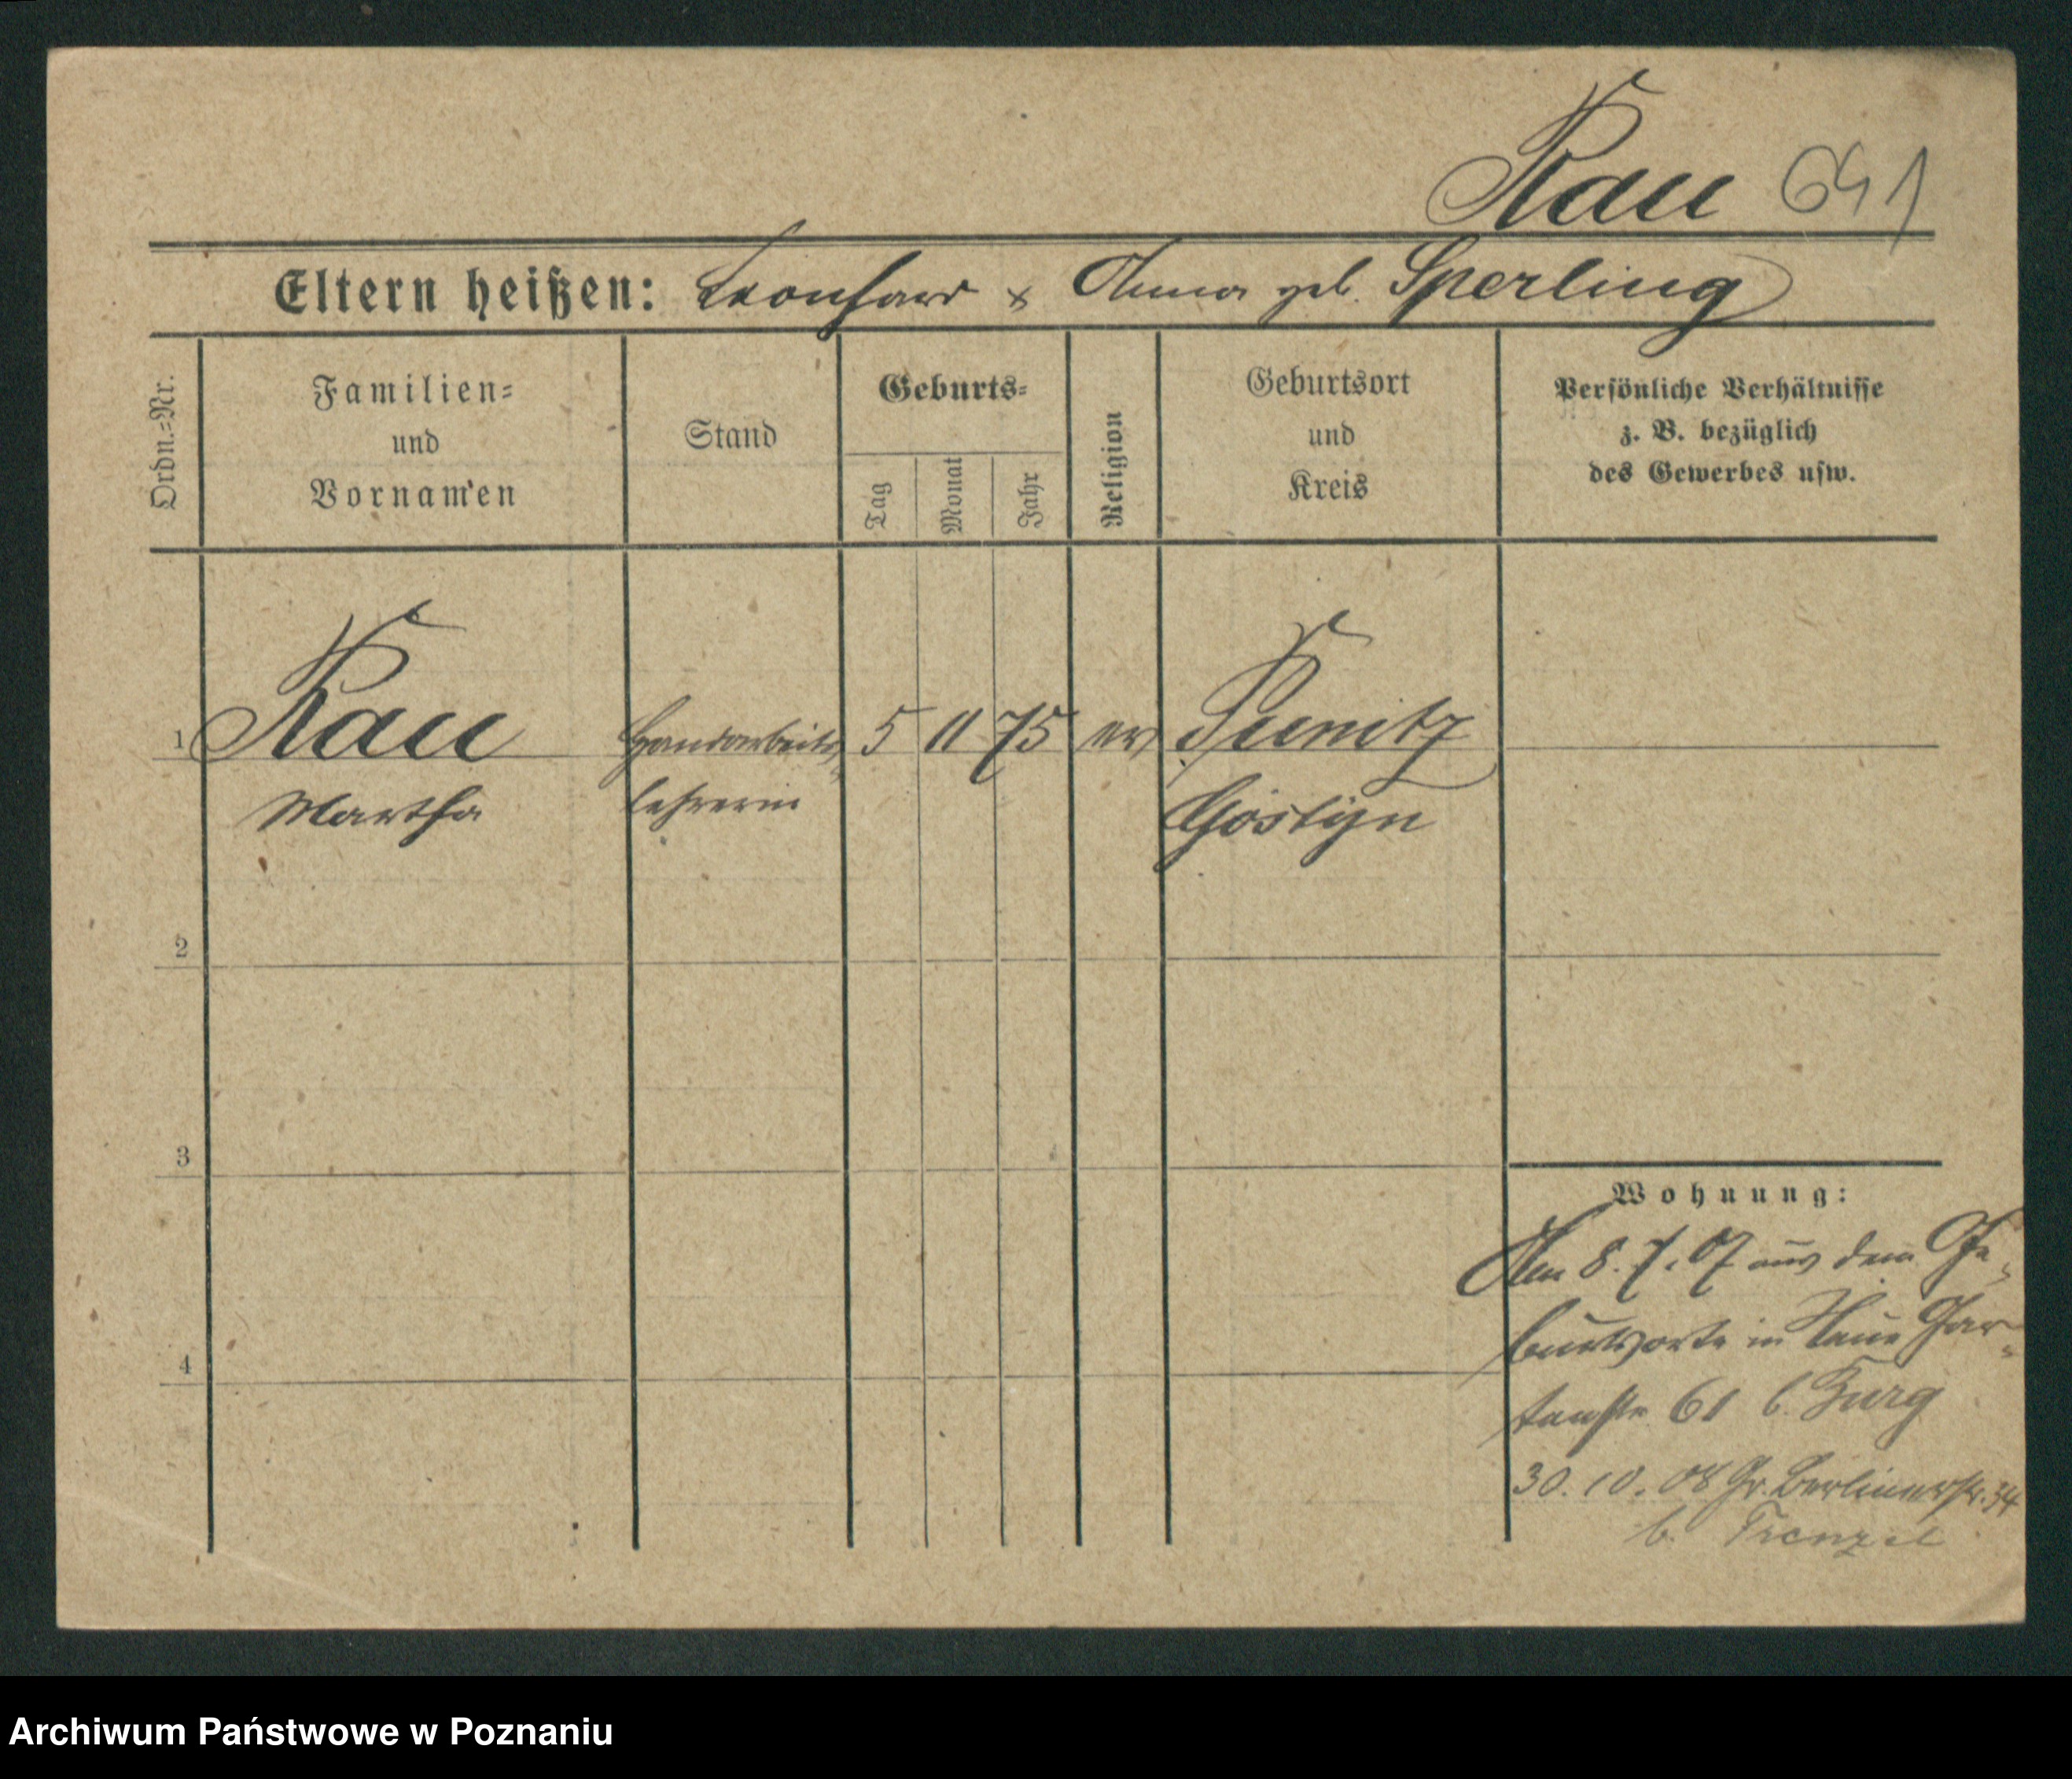 Rau 641
Eltern heißen: Leonhard & Anna geb. Sperling
Ordn.=Nr.
Familien=
und
Vornamen
Stand
Geburts=
Tag
Monat
Jahr
Religion
Geburtsort
und
Kreis
Persönliche Verhältnisse
z. B. bezüglich
des Gewerbes usw.
1 Rau Handarbeits= 5 11 75 ev Punitz
Martha lehrerin Gostyn
2
3
4
Wohnung:
Am 8. 7. 07 aus dem Ge=
burtsorte in Neue Gar=
tenstr 61 b. Burg
30. 10. 08 Gr. Berlinerstr. 34
b. Frenzel
Archiwum Państwowe w Poznaniu